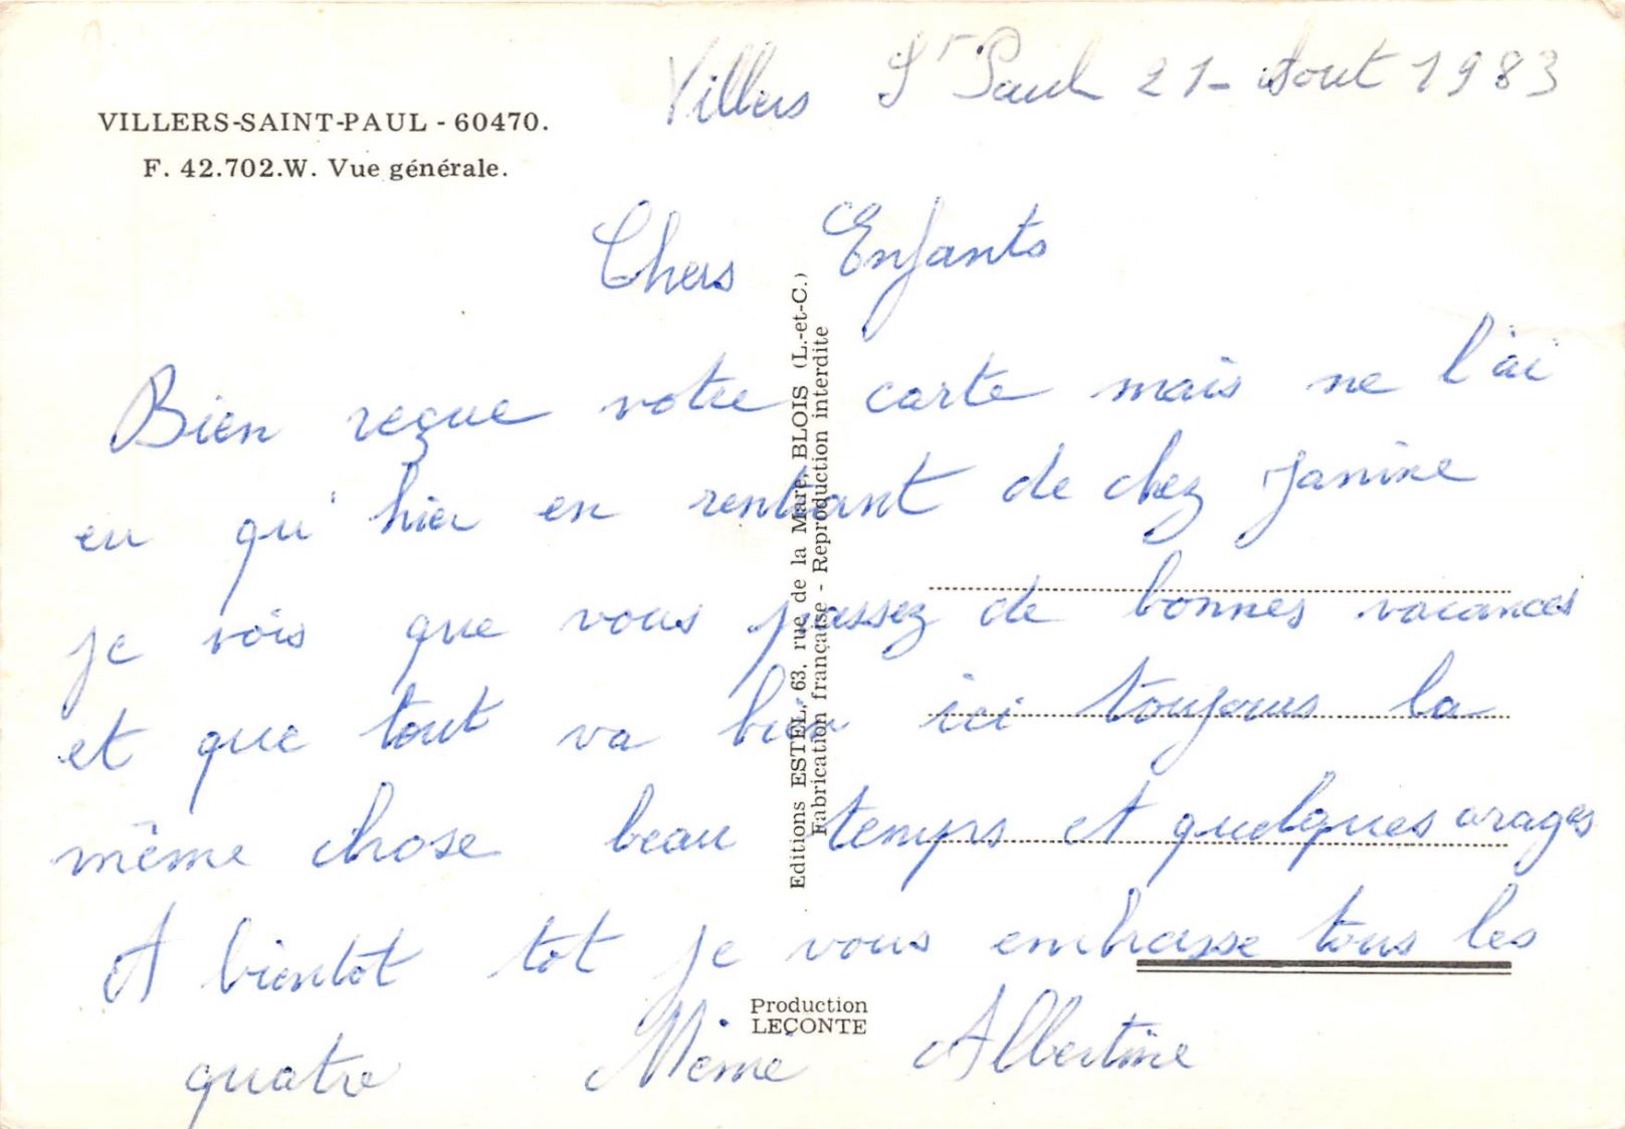 VILLERS-SAINT-PAUL - 60470.
F. 42.702.W. Vue générale.
Villers St Paul 21 - Aout 1983
Chers Enfants
Bien reçue votre carte mais ne l'ai
eu qu'hier en rentrant de chez Janine
je vois que vous passez de bonnes vacances
et que tout va bien ici toujours la
même chose beau temps et quelques orages
A bientot tot je vous embrasse tous les
quatre Mémé Albertine
Editions ESTEL, 63, rue de la Mare, BLOIS (L.-et-C.)
Fabrication française - Reproduction interdite
Production
LECONTE